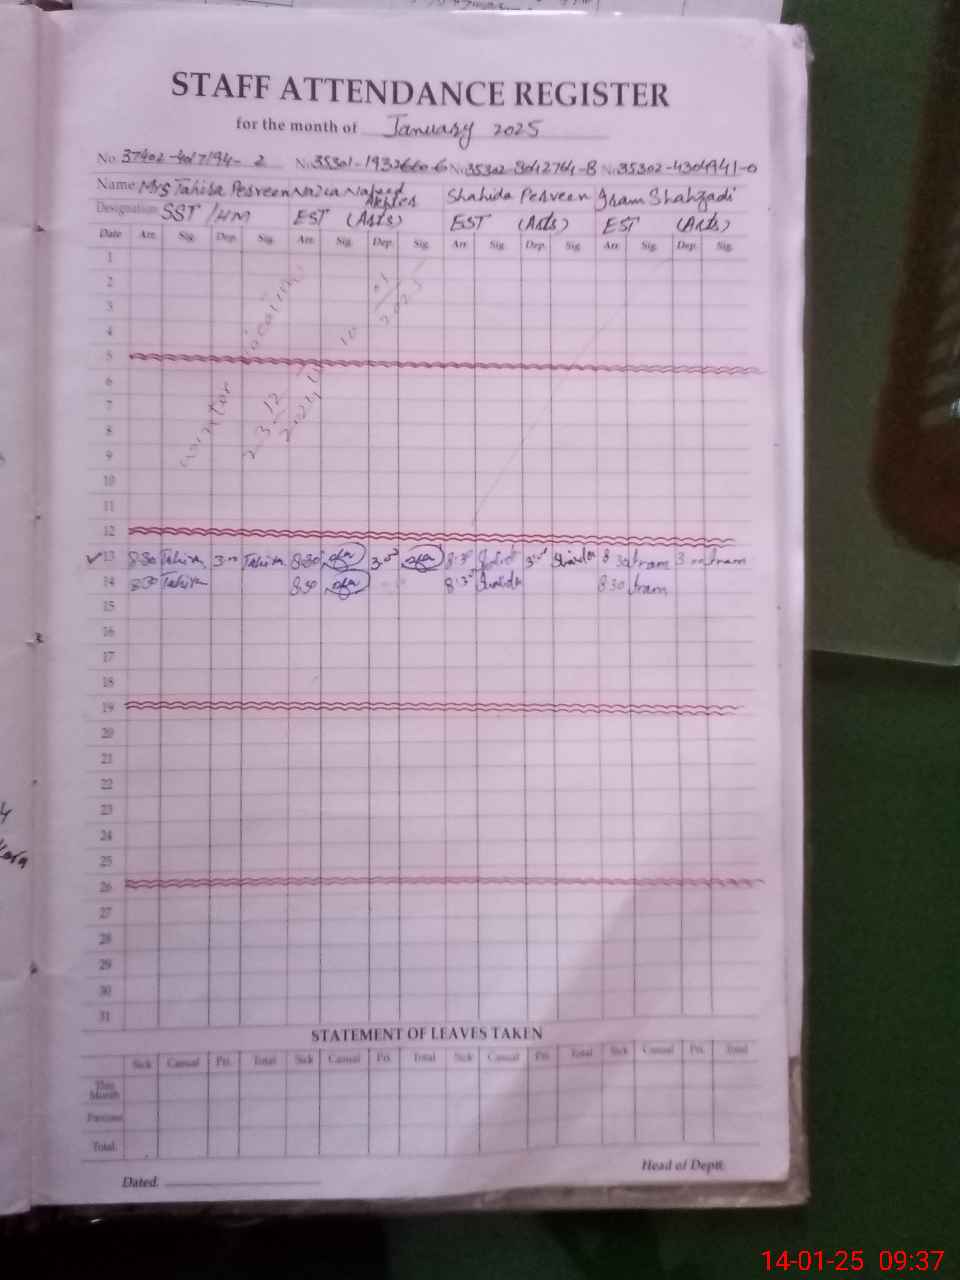 STAFF ATTENDANCE REGISTER
for the month of January 2025
No. 37402-4017194-2 No. 35301-1932660-6 No. 35302-8042764-8 No. 35302-4304941-0
Name Mrs Tahira Perveen Nazia Naheed Akhter Shahida Perveen Iram Shahzadi
Designation SST / HM EST (Arts) EST (Arts) EST (Arts)
Date Arr. Sig. Dep. Sig. Arr. Sig. Dep. Sig. Arr. Sig. Dep. Sig. Arr. Sig. Dep. Sig.
1
2
3
4
5
6
7
8
9
10
11
12
winter vacation
23-12-2024 to 10/01/2025
13 8:30 Tahira 3:00 Tahira 8:30 3:00 8:30 3:00 Shahida 8:30 Iram 3:00 Iram
14 8:30 Tahira 8:30 8:30 Shahida 8:30 Iram
15
16
17
18
19
20
21
22
23
24
25
26
27
28
29
30
31
STATEMENT OF LEAVES TAKEN
Sick Casual Pri. Total Sick Casual Pri. Total Sick Casual Pri. Total Sick Casual Pri. Total
This Month
Previous
Total
Head of Deptt.
Dated.
14-01-25 09:37